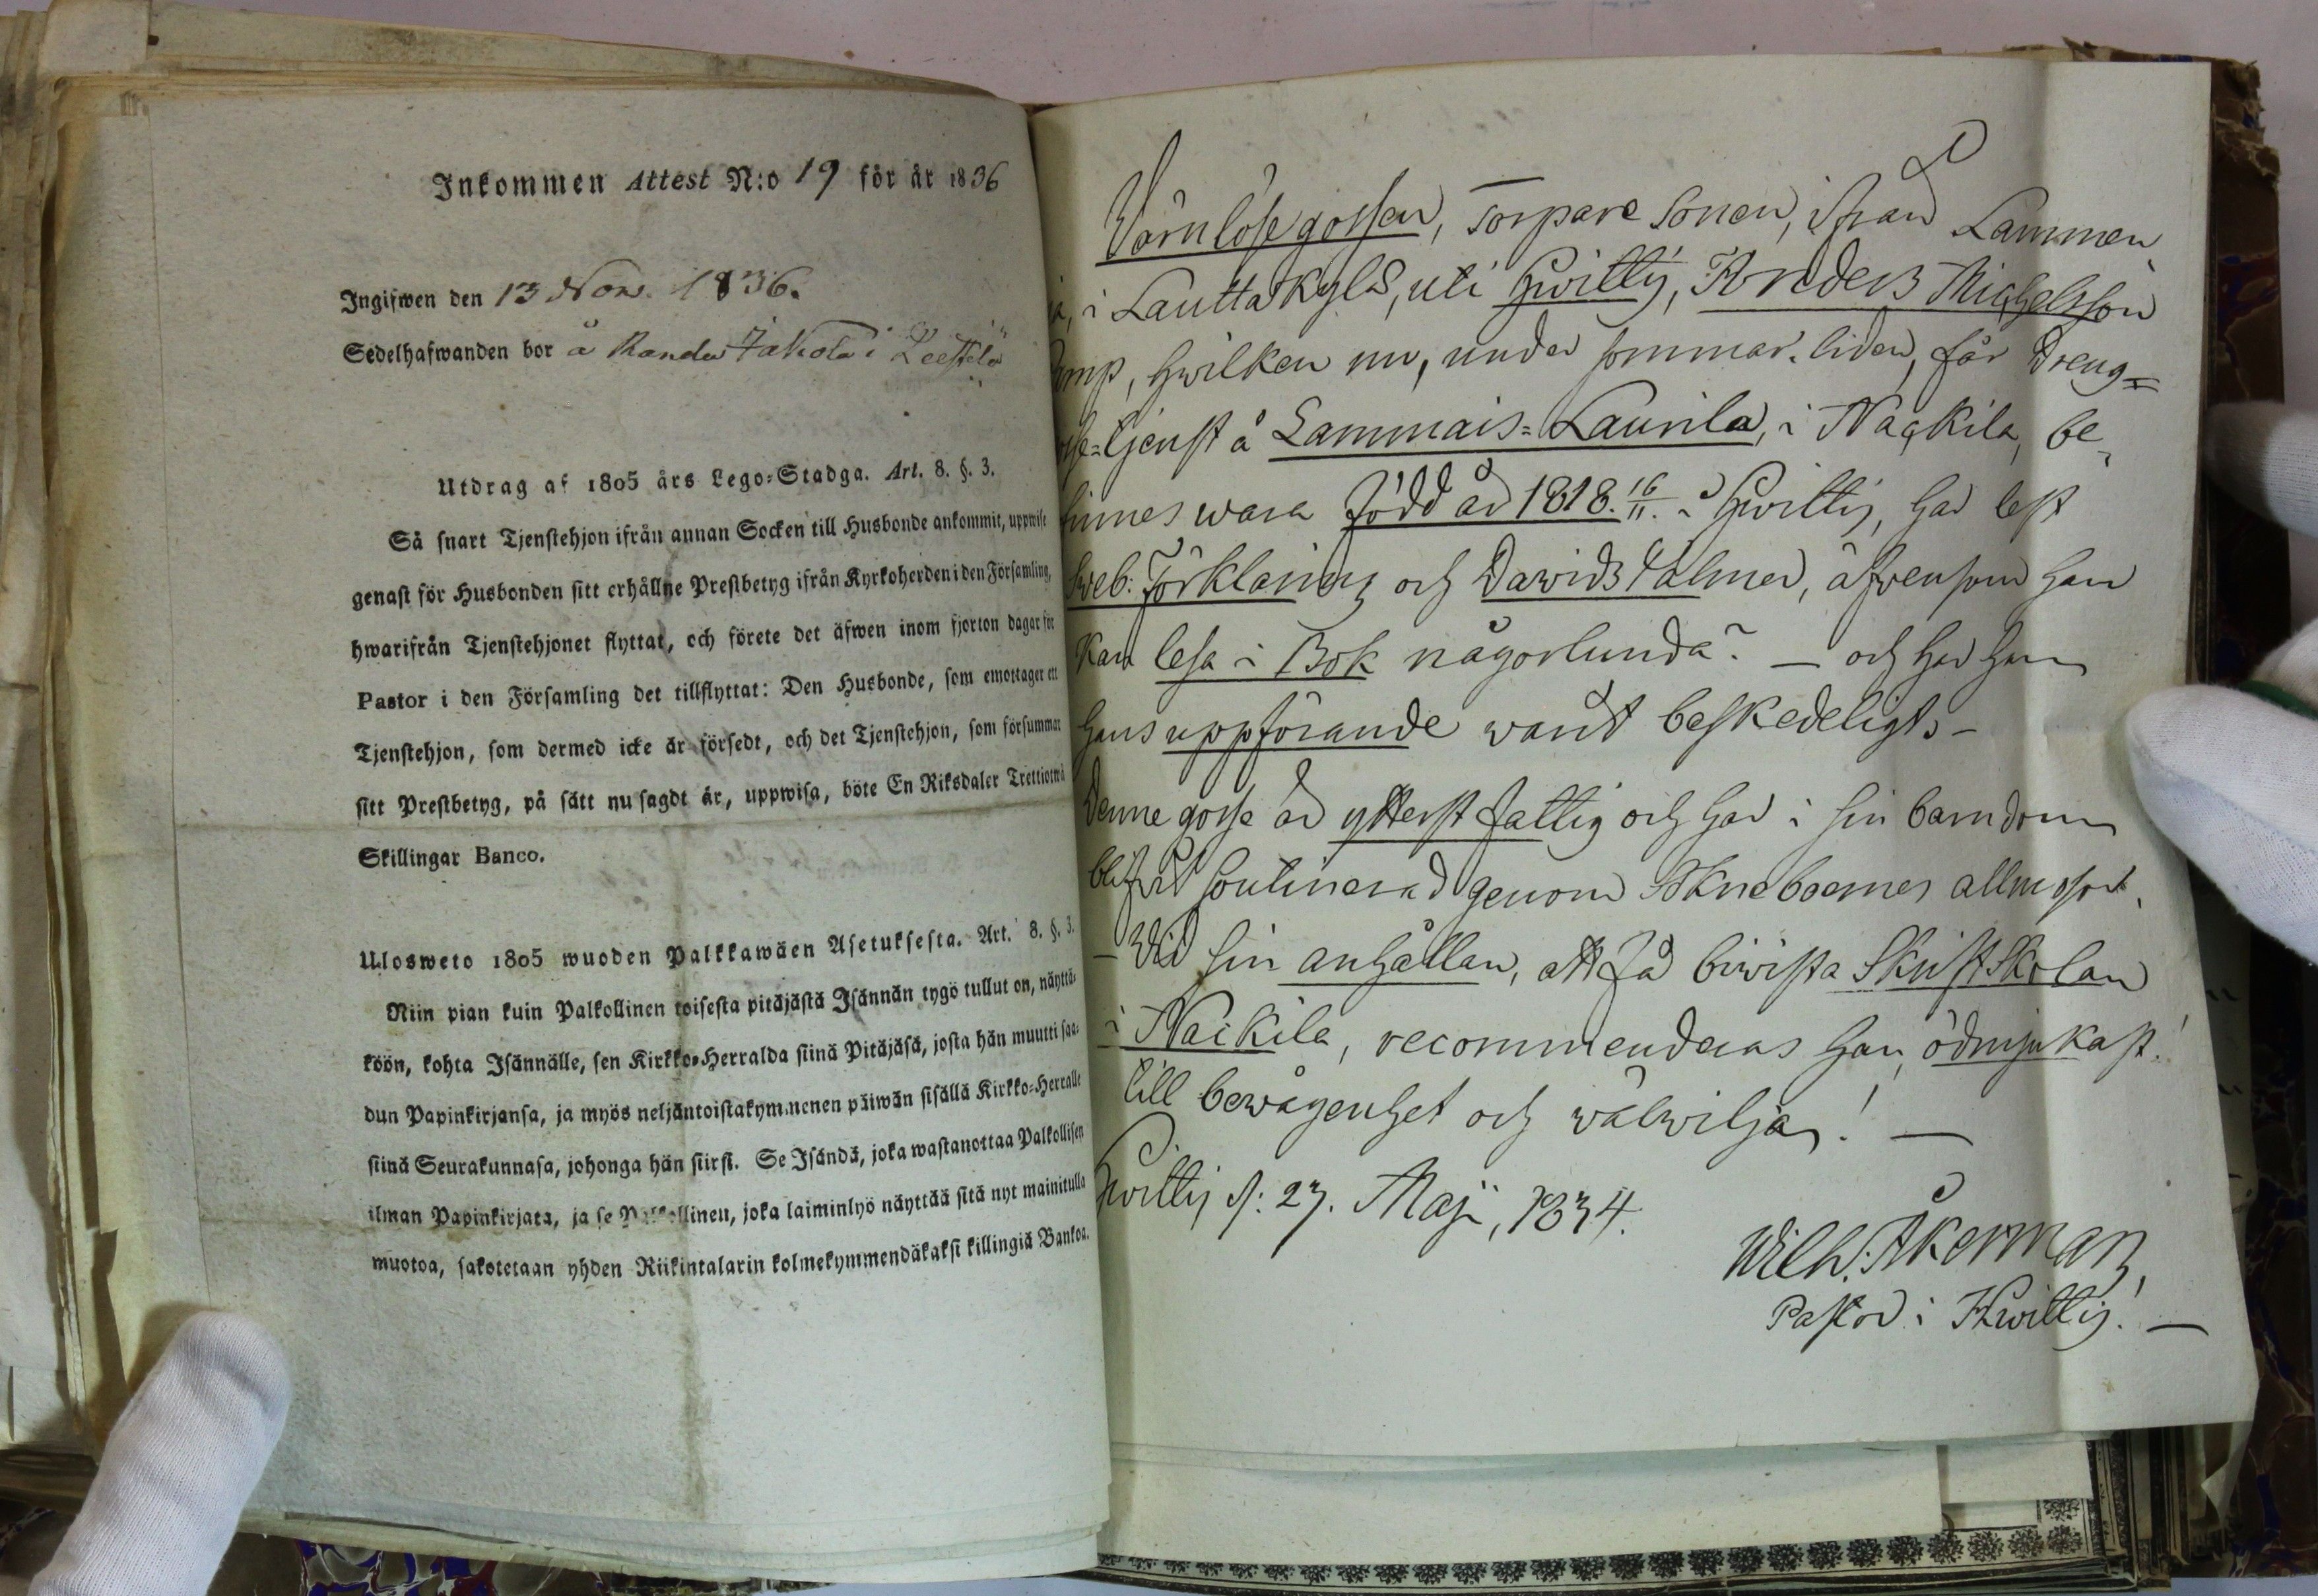 Inkommen Attest N:o 19 för år 1836
Ingifwen den 13 Nov. 1836.
Sedelhafwanden bor å Randa Jakola i
Utdrag af 1805 års Lego-Stadga. Art. 8. §. 3.
Så snart Tjenstehjon ifrån annan Socken till Husbonde ankommit, uppwise
genast för Husbonden sitt erhållne Prestbetyg ifrån Kyrkoherden i den Församling,
hwarifrån Tjenstehjonet flyttat, och förete det äfwen inom fjorton dagar för
Pastor i den Församling det tillflyttat: Den Husbonde, som emottager ett
Tjenstehjon, som dermed icke är försedt, och det Tjenstehjon, som försummar
sitt Prestbetyg, på sätt nu sagdt är, uppwisa, böte En Riksdaler Trettiotwå
Skillingar Banco.
Ulosweto 1805 wuoden Palkkawäen Asetuksesta. Art. 8. §. 3.
Niin pian kuin Palkollinen toisesta pitäjästä Isännän tygö tullut on, näyttä-
köön, kohta Isännälle, sen Kirkko-Herralda siinä Pitäjäsä, josta hän muutti saa-
dun Papinkirjansa, ja myös neljäntoistakymmenen päiwän sisällä Kirkko-Herralle
siinä Seurakunnasa, johonga hän siirsi. Se Isändä, joka wastanottaa Palkollisen
ilman Papinkirjata, ja se Palkollinen, joka laiminlyö näyttää sitä nyt mainitulla
muotoa, sakotetaan yhden Riikintalarin kolmekymmendäkaksi killingiä Bankoa.
Wärnlöse gossen, Torpare Sonen, ifrån Lammen
ja, i Lauttakylä, uti Hwittis, Anders Michelsson
hwilken nu, under sommar-tiden, får Dreng=
tjenst å Lammais=Laurila, i Nackila, be
finnes wara född år 1818. 16/11. i Hwittis, har lest
Sweb: Förklaring och Davids Psalmer, äfvensom han
kan lesa i Bok någorlunda. — och har han
hans uppförande warit beskedeligt. –
Denne gosse är ytterst fattig och har i sin barndom
blifvit soutinerad genom Sokneboernes allmosor.
– Wid sin anhållan, att få biwista Skriftskolan
i Nackila, recommenderas han ödmjukast!
till bewågenhet och wälwilja! —
Hwittis d: 27. Maji, 1834.
Wilh. Åkerman,
Pastor i Hwittis. —